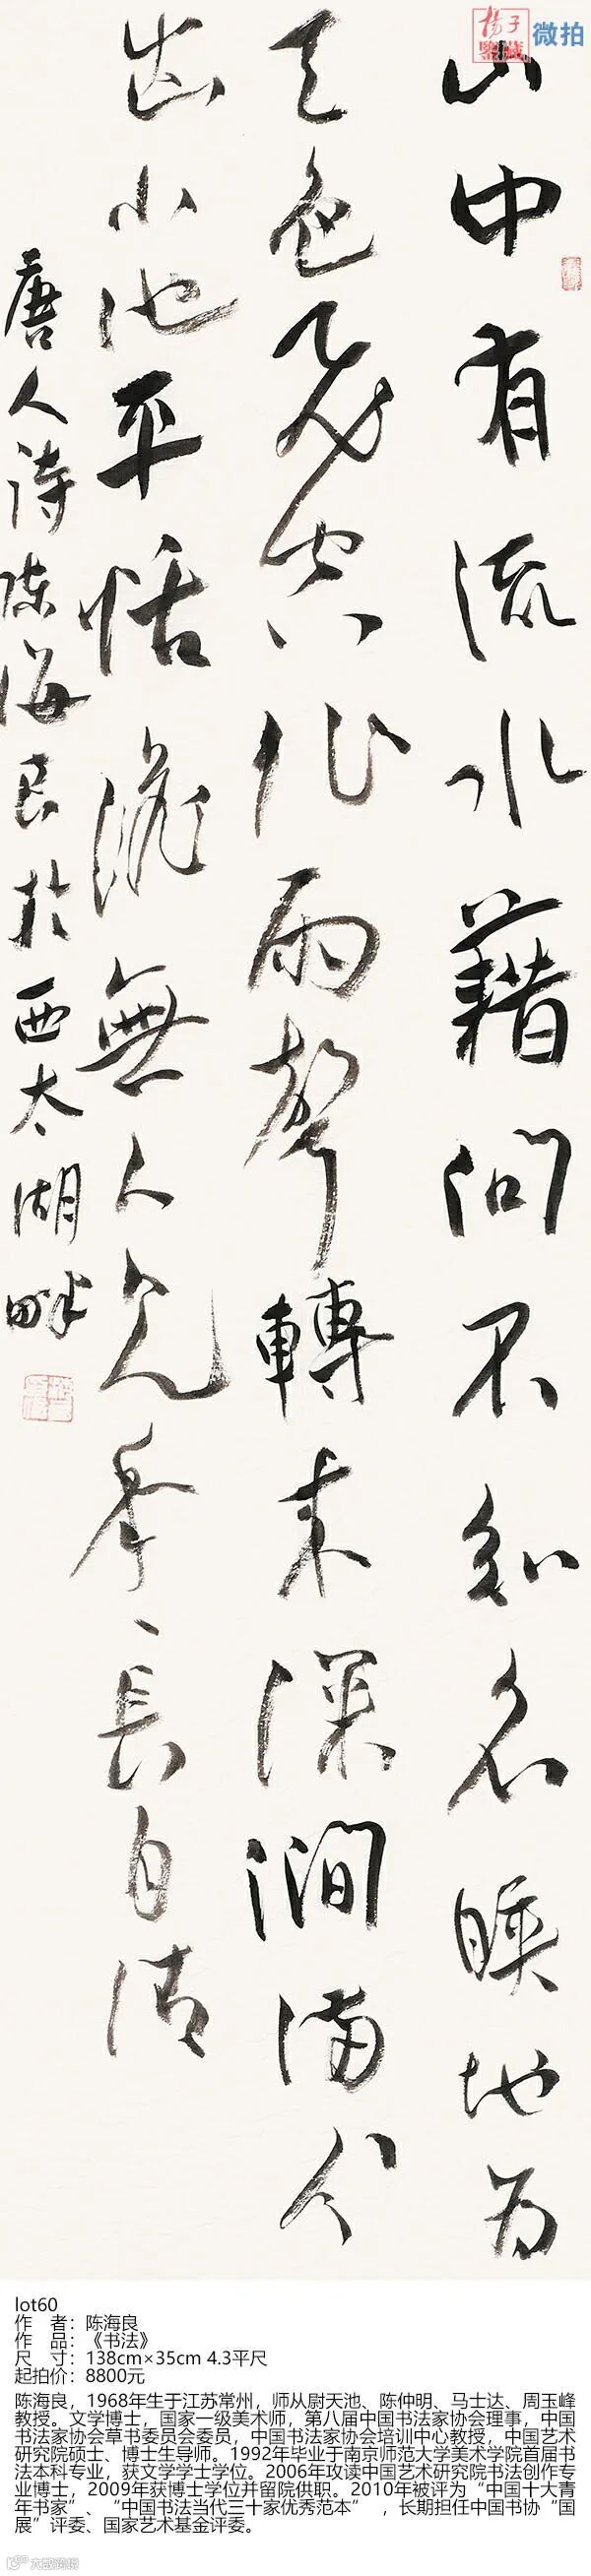 揚子
鑒藏 微拍
山中有流水藉問不知名暎地为
天色飛空作雨聲轉来深澗满分
出小池平恬澹無人見年、長自清
唐人诗陈海良於西太湖畔
lot60
作 者：陈海良
作 品：《书法》
尺 寸：138cm×35cm 4.3平尺
起拍价：8800元
陈海良，1968年生于江苏常州，师从尉天池、陈仲明、马士达、周玉峰
教授。文学博士，国家一级美术师，第八届中国书法家协会理事，中国
书法家协会草书委员会委员，中国书法家协会培训中心教授，中国艺术
研究院硕士、博士生导师。1992年毕业于南京师范大学美术学院首届书
法本科专业，获文学学士学位。2006年攻读中国艺术研究院书法创作专
业博士，2009年获博士学位并留院供职。2010年被评为“中国十大青
年书家”、“中国书法当代三十家优秀范本”，长期担任中国书协“国
展”评委、国家艺术基金评委。